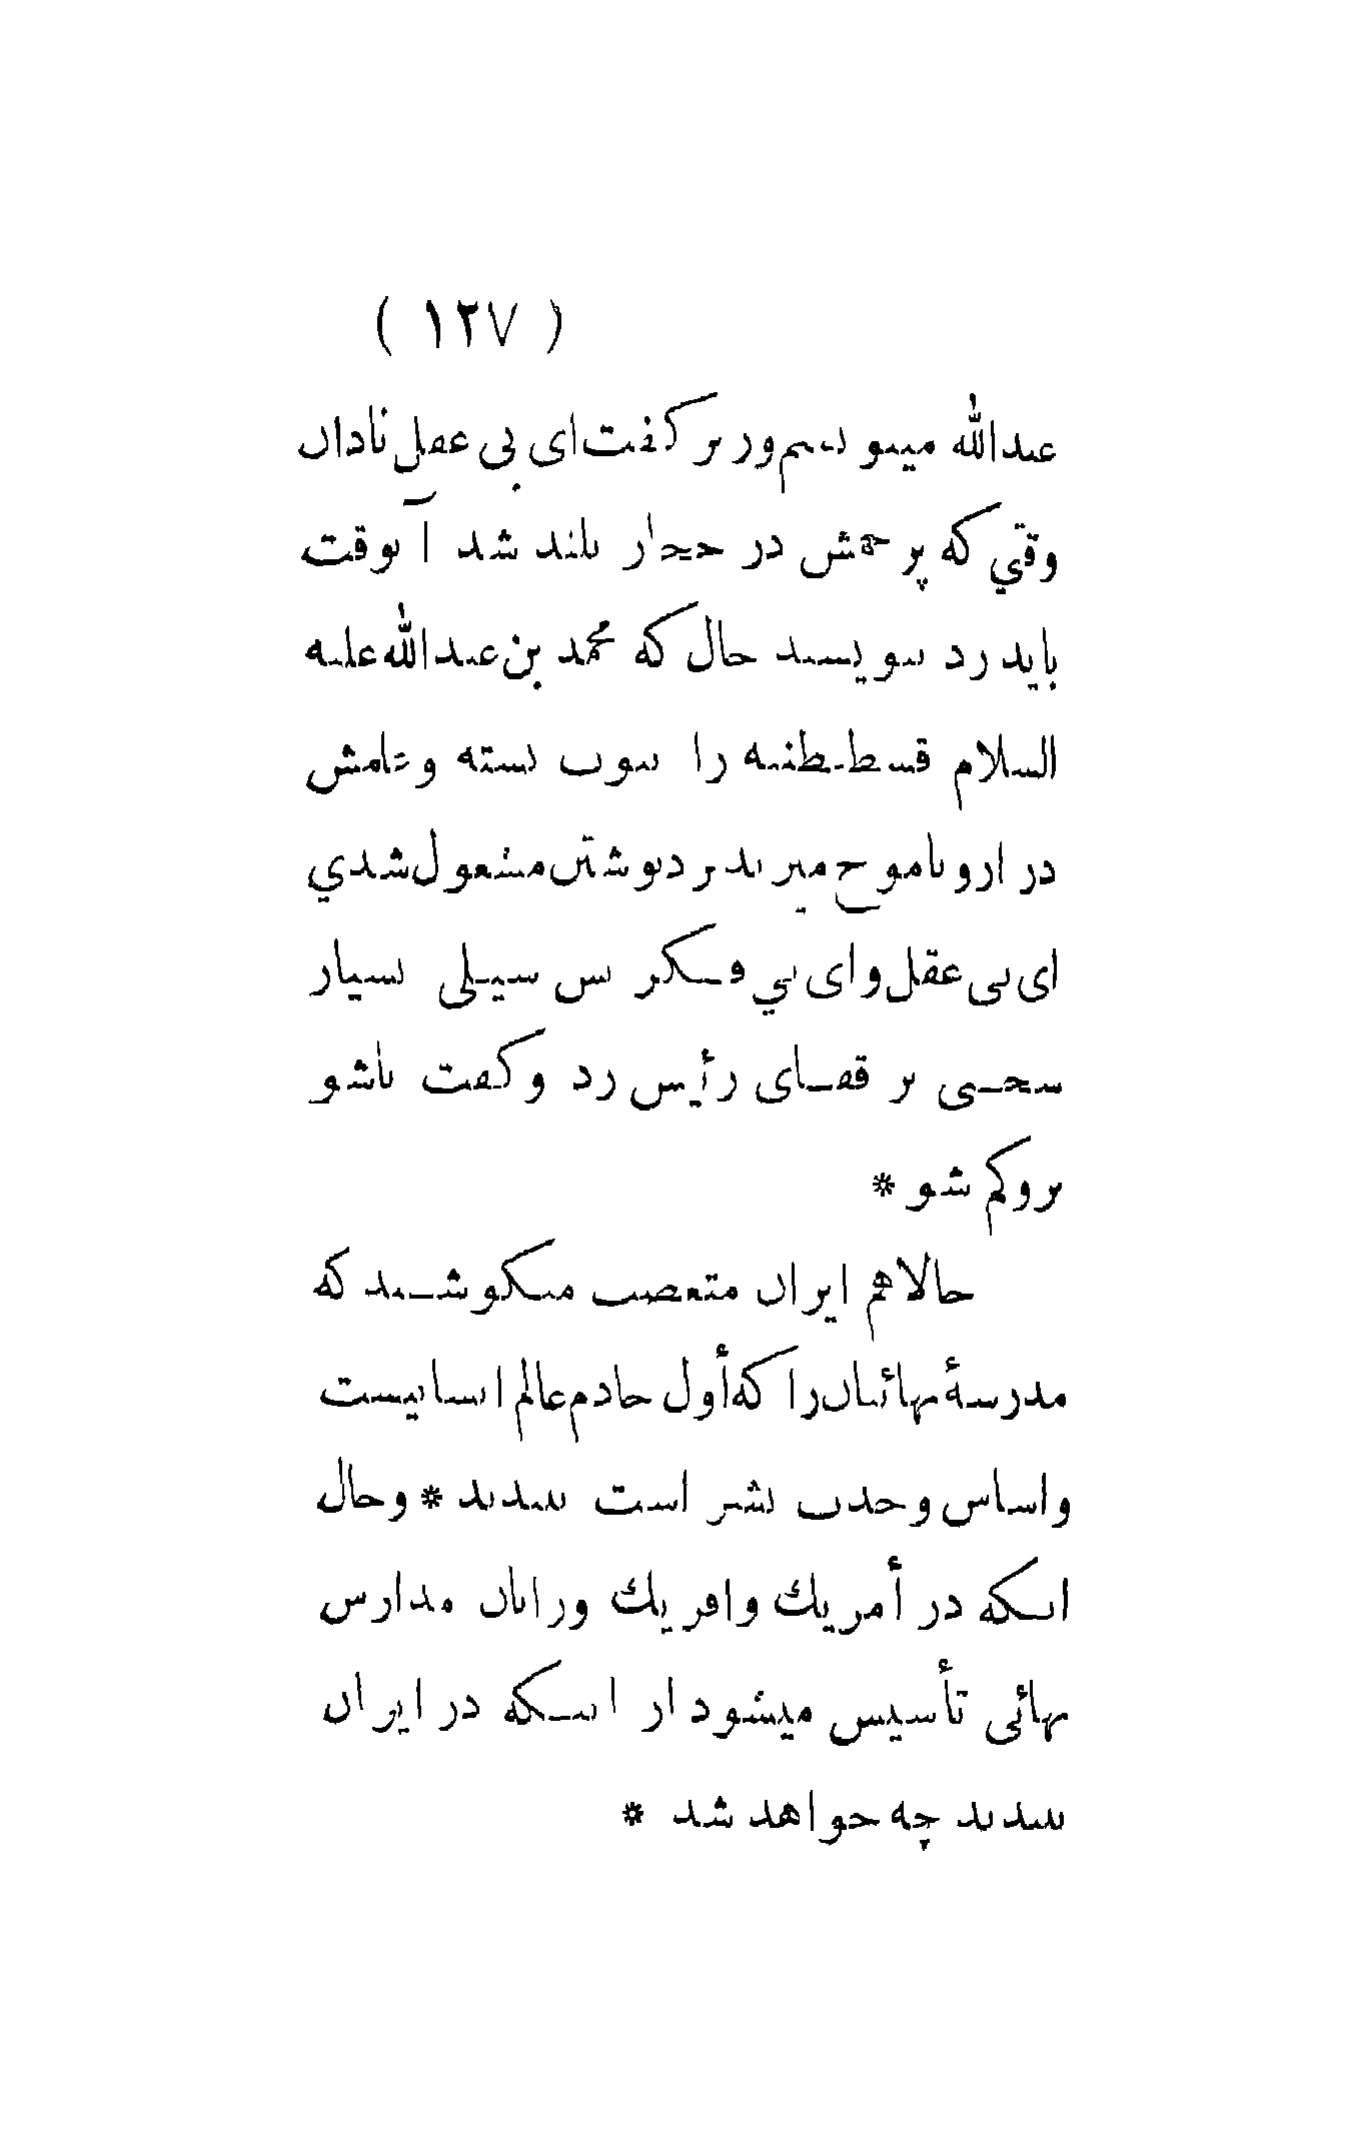 ( ١٢٧ )
عبدالله مینویسم وزیر گفت ای بی عقل نادان
وقتي که پرچمش در حجاز بلند شد آنوقت
باید رد بنویسید حال که محمد بن عبدالله علیه
السلام قسطنطنیه را بیوت بسته و علمش
در اروپا موج میزند برد نوشتن مشغول شدي
ای بی عقل و ای بي فکر پس سیلی بسیار
سختی بر قفای رئیس زد و گفت پاشو
برو گم شو *
حالا هم ایران متعصب میکوشند که
مدرسهٔ بهائیان را که أول خادم عالم انسانیست
و اساس وحدت بشر است ببندند * و حال
اینکه در أمریك و افریك و ژاپان مدارس
بهائی تأسیس میشود از اینکه در ایران
ببندند چه خواهد شد *